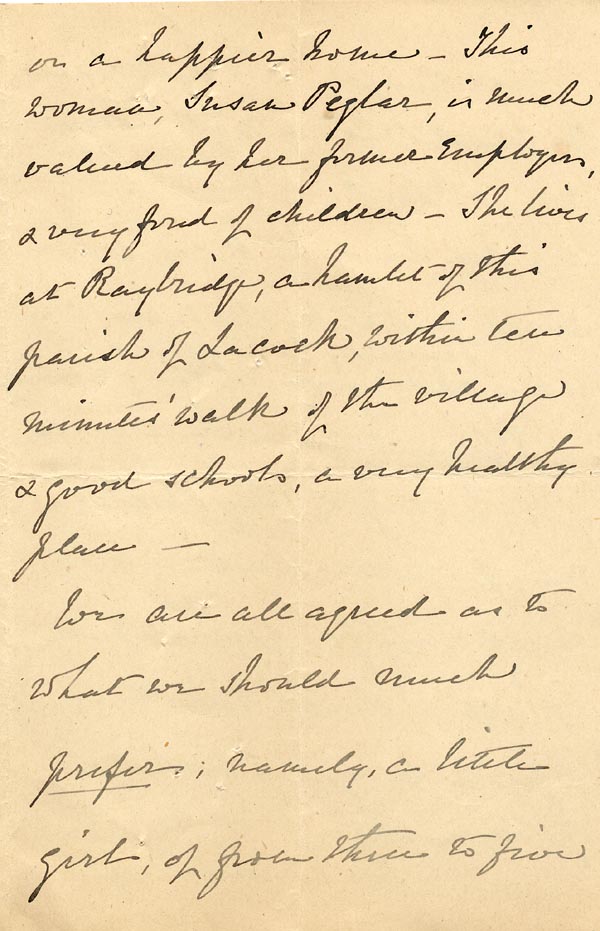 or a happier home – This
woman, Susan Peglar, is much
valued by her former Employers,
& very fond of children – She lives
at Raybridge, a hamlet of this
parish of Lacock, within ten
minutes' walk of the village
& good schools, a very healthy
place –
We are all agreed as to
what we should much
prefer; namely, a little
girl, of from three to five